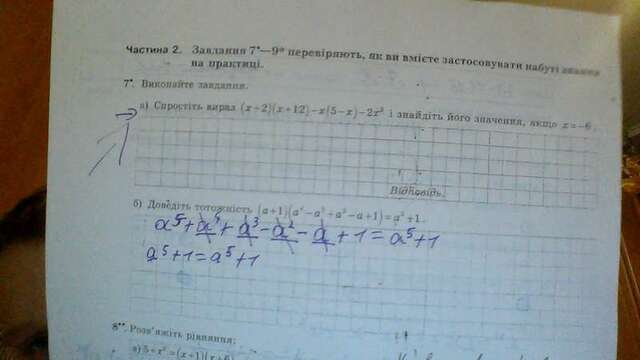 Частина 2. Завдання 7•—9• перевіряють, як ви вмієте застосовувати набуті знання
на практиці.
7•. Виконайте завдання.
а) Спростіть вираз (x+2)(x+12)−x(5−x)−2x² і знайдіть його значення, якщо x=−6.
Відповідь.
б) Доведіть тотожність (a+1)(a⁴−a³+a²−a+1)=a⁵+1.
a⁵+a⁴+a³−a²−a+1=a⁵+1
a⁵+1=a⁵+1
8••. Розв'яжіть рівняння:
а) 5+x²=(x+1)(x+6)